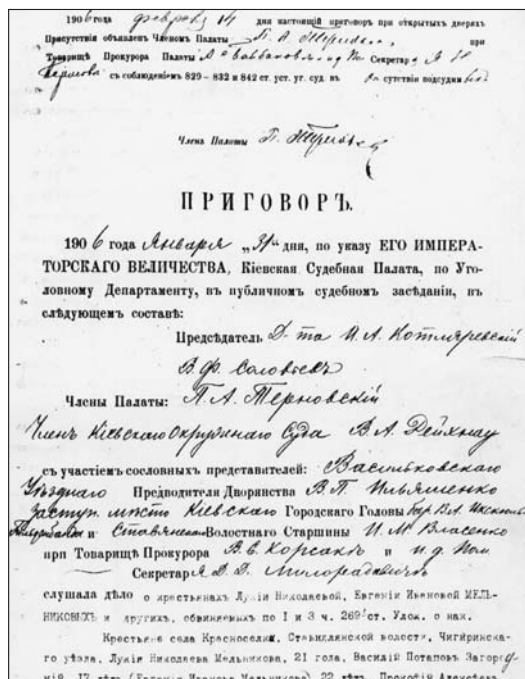 1906 года февраля 14 дня настоящій приговоръ при открытыхъ дверяхъ
Присутствія объявленъ Членомъ Палаты П. А. при
Товарищѣ Прокурора Палаты Секретаря
съ соблюденіемъ 829 – 832 и 842 ст. уст. уг. суд. въ сутствіи подсудим
Членъ Палаты П.
ПРИГОВОРЪ.
1906 года Января „31" дня, по указу ЕГО ИМПЕРА-
ТОРСКАГО ВЕЛИЧЕСТВА, Кіевская Судебная Палата, по Уго-
ловному Департаменту, въ публичномъ судебномъ засѣданіи, въ
слѣдующемъ составѣ:
Предсѣдатель Д-та И. А. Котляревскій
В. Ф. Соловьевъ
Члены Палаты: П. А. Терновскій
Членъ Кіевскаго Окружнаго Суда В. А. Дейхнау
съ участіемъ сословныхъ представителей: Васильковскаго
Уѣзднаго Предводителя Дворянства В. П. Ильяшенко
Заступ. мѣсто Кіевскаго Городскаго Головы бар. В. А.
и Ставянской Волостнаго Старшины И. М. Власенко
при Товарищѣ Прокурора В. В. Корсакъ и и. д. Пом
Секретаря Д. Д. Милорадовичъ
слушала дѣло о крестьянахъ Лукіи Николаевой, Евгеніи Ивановой МЕЛЬ-
НИКОВЫХЪ и другихъ, обвиняемыхъ по I и 3 ч. 269¹ ст. Улож. о нак.
Крестьяне села Красноселки, Ставиллянской волости, Чигиринска-
го уѣзда, Лукія Николаева Мельникова, 21 года, Василій Потаповъ Загору
ній, 17 лѣтъ, (Евгенія Иванова Мельникова) 22 лѣтъ, Прокофій Алексѣевъ